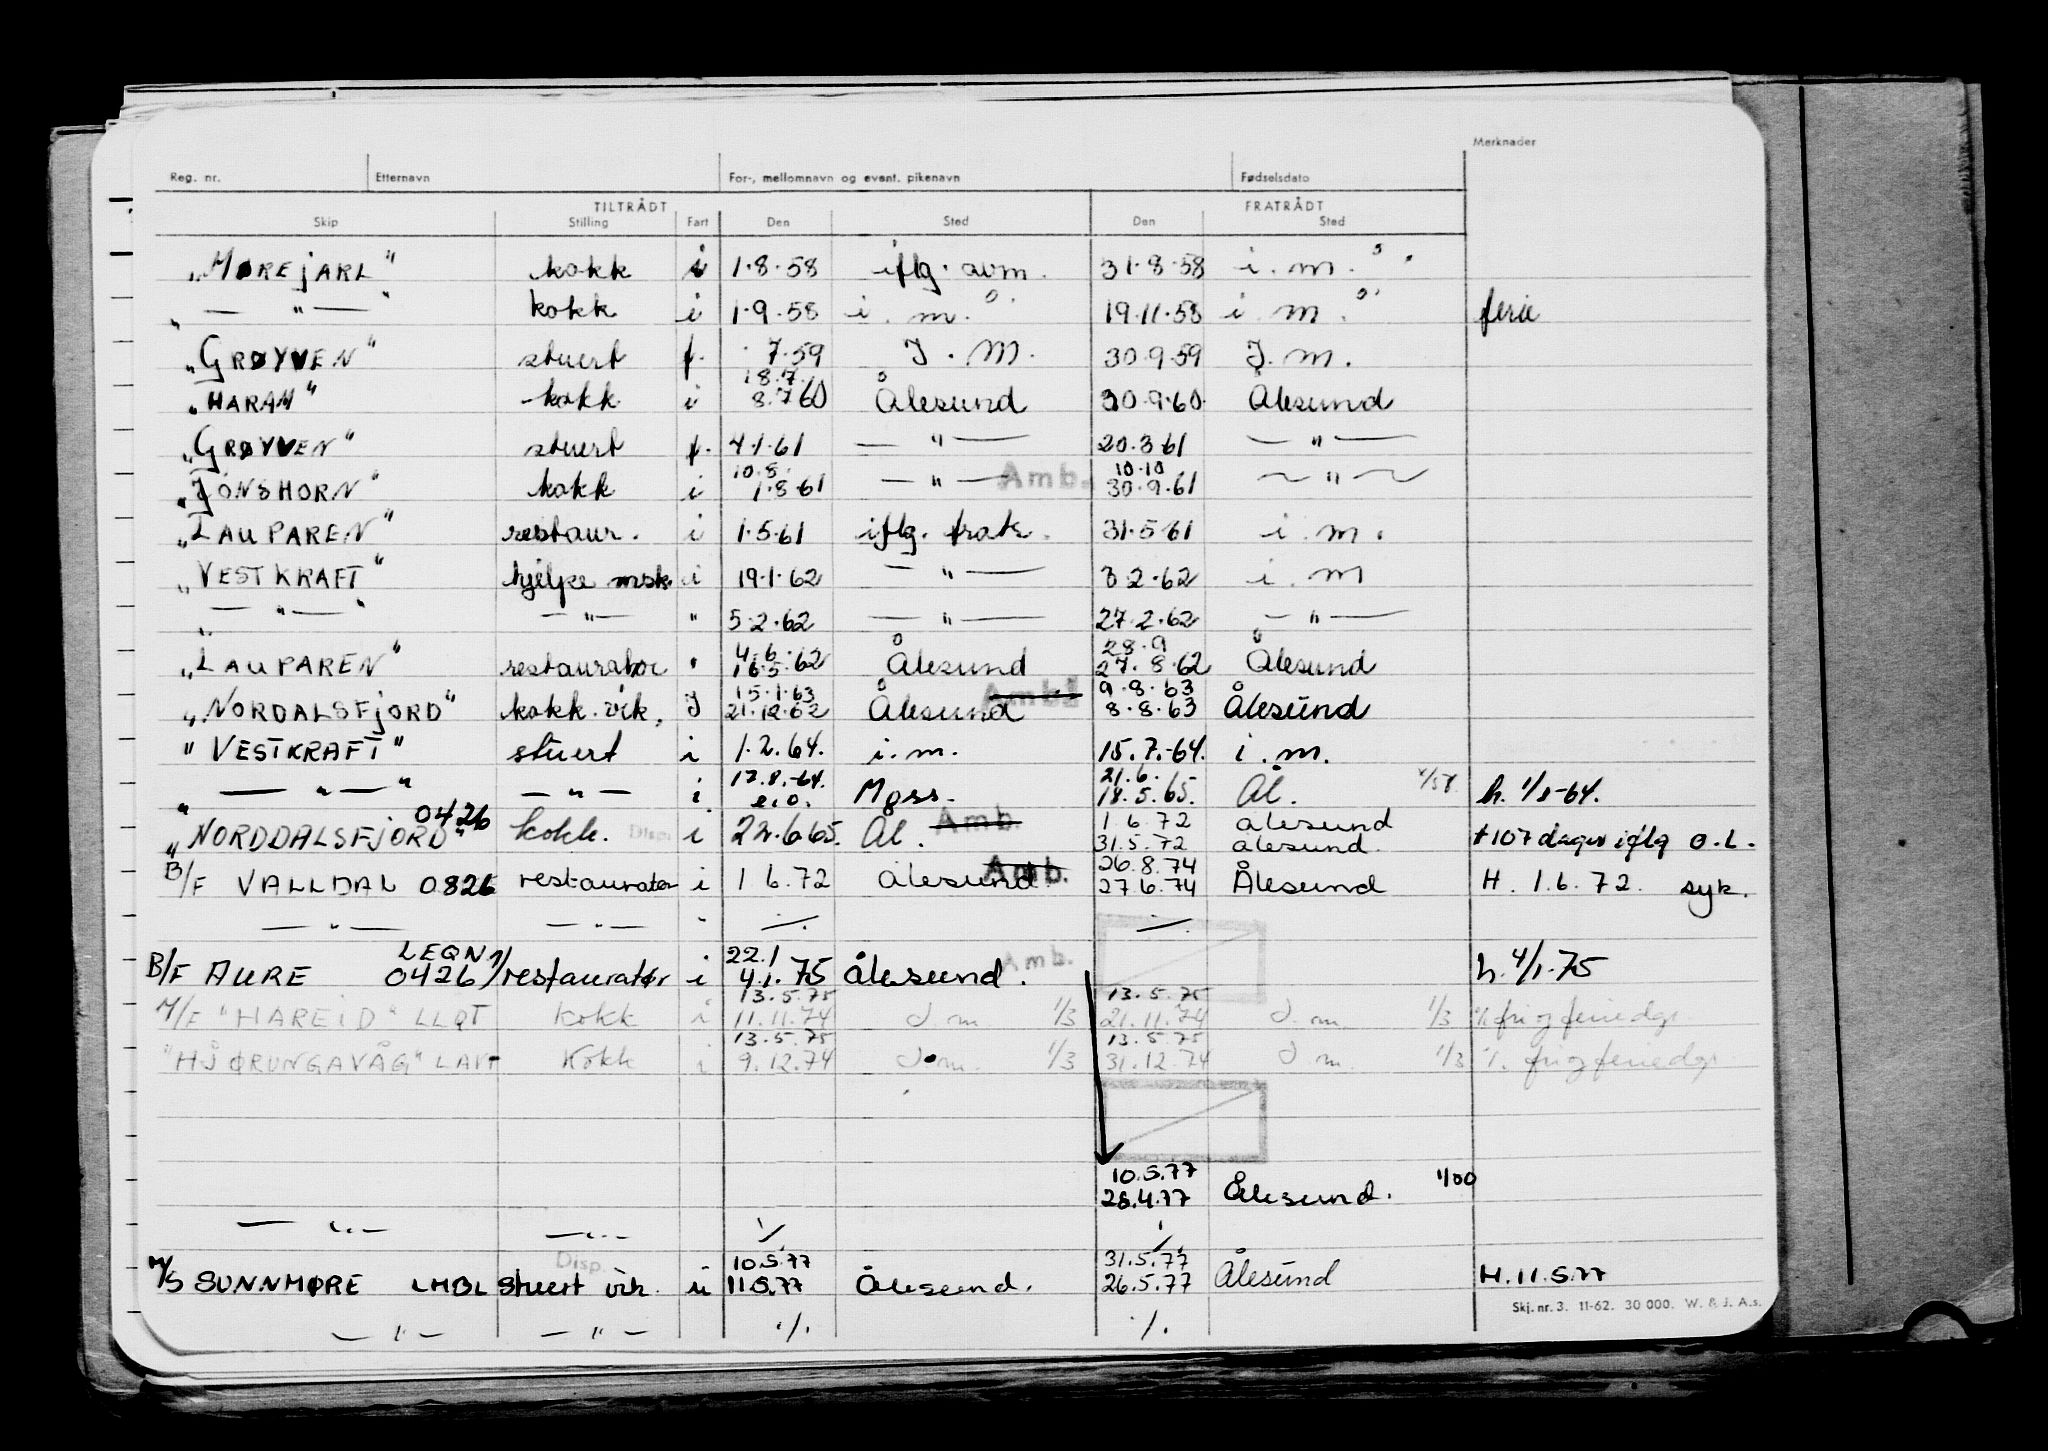 Merknader
Reg. nr. Etternavn For-, mellomnavn og event. pikenavn Fødselsdato
TILTRÅDT FRATRÅDT
Skip Stilling Fart Den Sted Den Sted
"MØREJARL" kokk i 1.8.58 iflg. avm. 31.8.58 i. m.
" — " — " kokk i 1.9.58 i. m. 19.11.58 i. m. ferie
"GRØYVEN" stuert f. 7.59 J. M. 30.9.59 J. m.
18.7.
"HARAM" kokk i 8.7 60 Ålesund 30.9.60 Ålesund
"GRØYVEN" stuert f. 4.1.61 — " — 20.3 61 — " —
10.8. Amb. 10.10
"JONSHORN" kokk i 1.8.61 — " — 30.9.61 — " —
"LAUPAREN" restaur. i 1.5.61 iflg. frak. 31.5.61 i. m.
"VESTKRAFT" hjelpe msk i 19.1.62 — " — 3 2.62 i. m
" — " — " — " — " 5.2.62 — " — 27.2.62 — " —
4.6. 28.9
"LAUPAREN" restauratør " 16.5.62 Ålesund 27.8.62 Ålesund
15.1.63 Amb. 9.8.63
"NORDALSFJORD" kokk. vik. J 21.12.62 Ålesund 8.8.63 Ålesund
"VESTKRAFT" stuert i 1.2.64. i. m. 15.7.-64. i. m.
12.8.-64. 21.6.
" — " — " — " — i e.o. Mgss. 18.5.65. Ål. h. 1/8-64.
0426 Amb. 1.6.72 ålesund
"NORDDALSFJORD" kokk. Disp. i 22.6 65. Ål. 31.5.72 ålesund. +107 dager iflg o.L.
Amb. 26.8.74
B/F VALLDAL 0826 restauratør i 1 6.72 ålesund. 27.6.74 Ålesund H. 1.6.72. syk.
— " — — " — " ./. ./.
LEQN 22.1 Amb.
B/F AURE 0426 restauratør i 4.1.75 ålesund. h. 4/1-75
13.5.75 13.5.75
M/F "HAREID" LLQT kokk i 11.11.74 J. m 1/3 21.11.74 J. m. 1/3 % fri og feriedgr.
13.5.75 13.5.75
"HJØRUNGAVÅG" Kokk i 9.12.74 J. m. 1/3 31.12.74 J m. 1/3 %. fri og feriedgr
10.5.77
26.4.77 Ålesund. 1/00
— " — — " — ./. ./.
Disp. 10.5.77 31.5.77
M/S SUNNMØRE LMBL Stuert vik. u 11.5.77 Ålesund. 26.5.77 Ålesund H. 11.5.77
Skj. nr. 3. 11-62. 30 000. W. & J. A.s.
— " — — " — ./. ./.